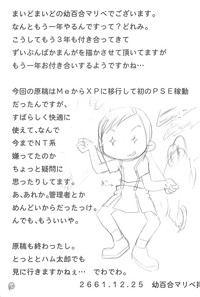 まいどまいどの幼百合マリベでございます。
なんともう一年やるんですって？どれみ。
こうしてもう３年も付き合ってきて
ずいぶんばかまんがを描かさせて頂いてますが
もう一年お付き合いするようですかね…
今回の原稿はＭｅからＸＰに移行して初のＰＳＥ稼動
だったんですが、
すばらしく快適に
使えて、なんで
今までＮＴ系
嫌ってたのか
ちょっと疑問に
思ったりしてます。
あ、あれか。管理者とか
めんどいからだったっけか。
んでも、もういいや。
原稿も終わったし。
とっととハム太郎でも
見に行きますかねぇ… でわでわ。
２６６１.１２.２５ 幼百合マリベ拝